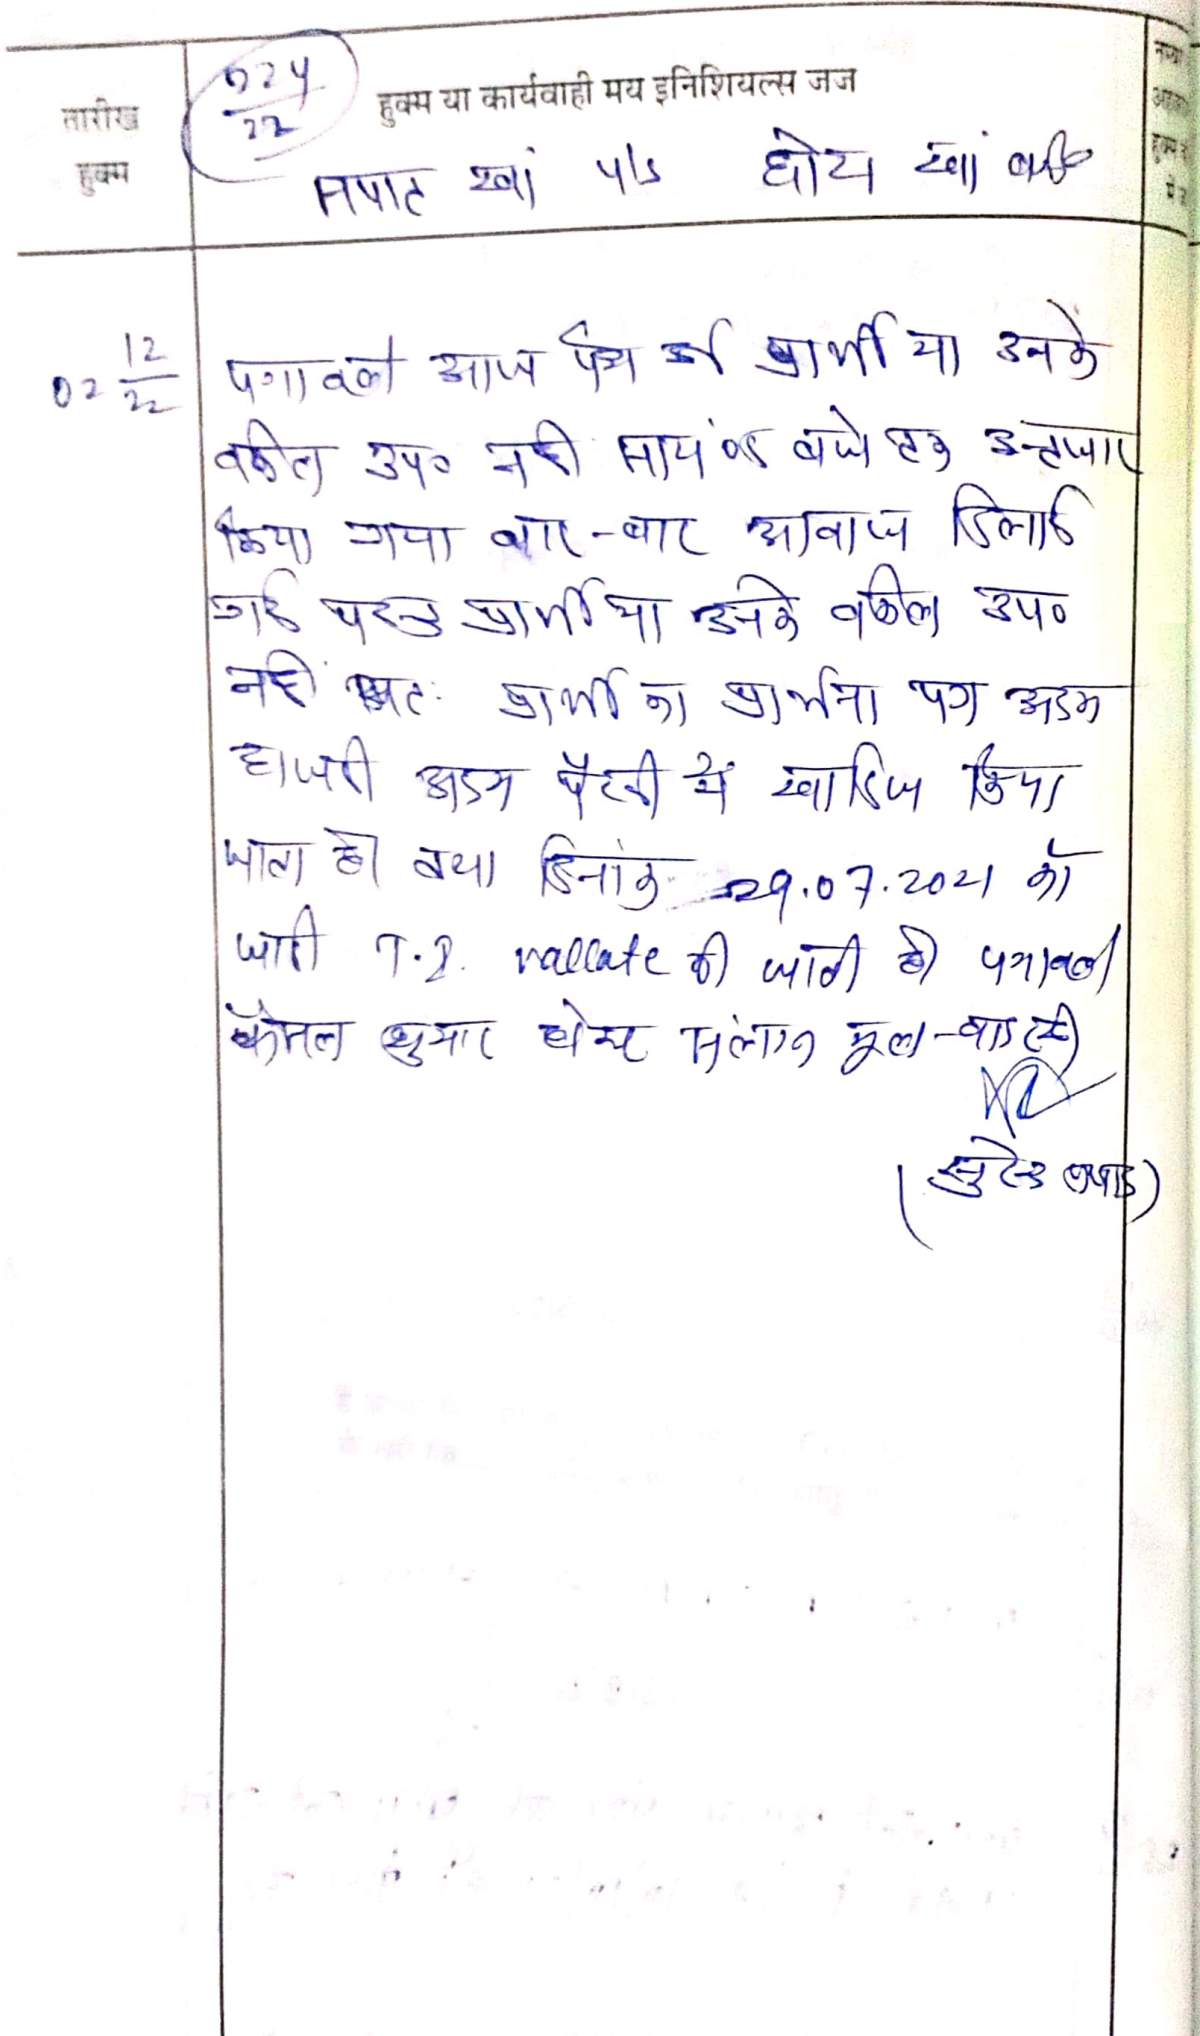 524/22
हुक्म या कार्यवाही मय इनिशियल्स जज
तारीख
हुक्म
खां v/s खां
02 12/22
पत्रावली आज पेश हुई प्रार्थी या उनके
वकील उप० नहीं सायं बजे तक इन्तजार
किया गया बार-बार आवाज दिलाई
गई परन्तु प्रार्थी या उनके वकील उप०
नहीं अतः प्रार्थी का प्रार्थना पत्र अदम
हाजरी अदम पैरवी में खारिज किया
जाता है तथा दिनांक 29.07.2021 को
जारी T.I. की जाती है पत्रावली
फैसल शुमार होकर संलग्न मूल-वाद रहे